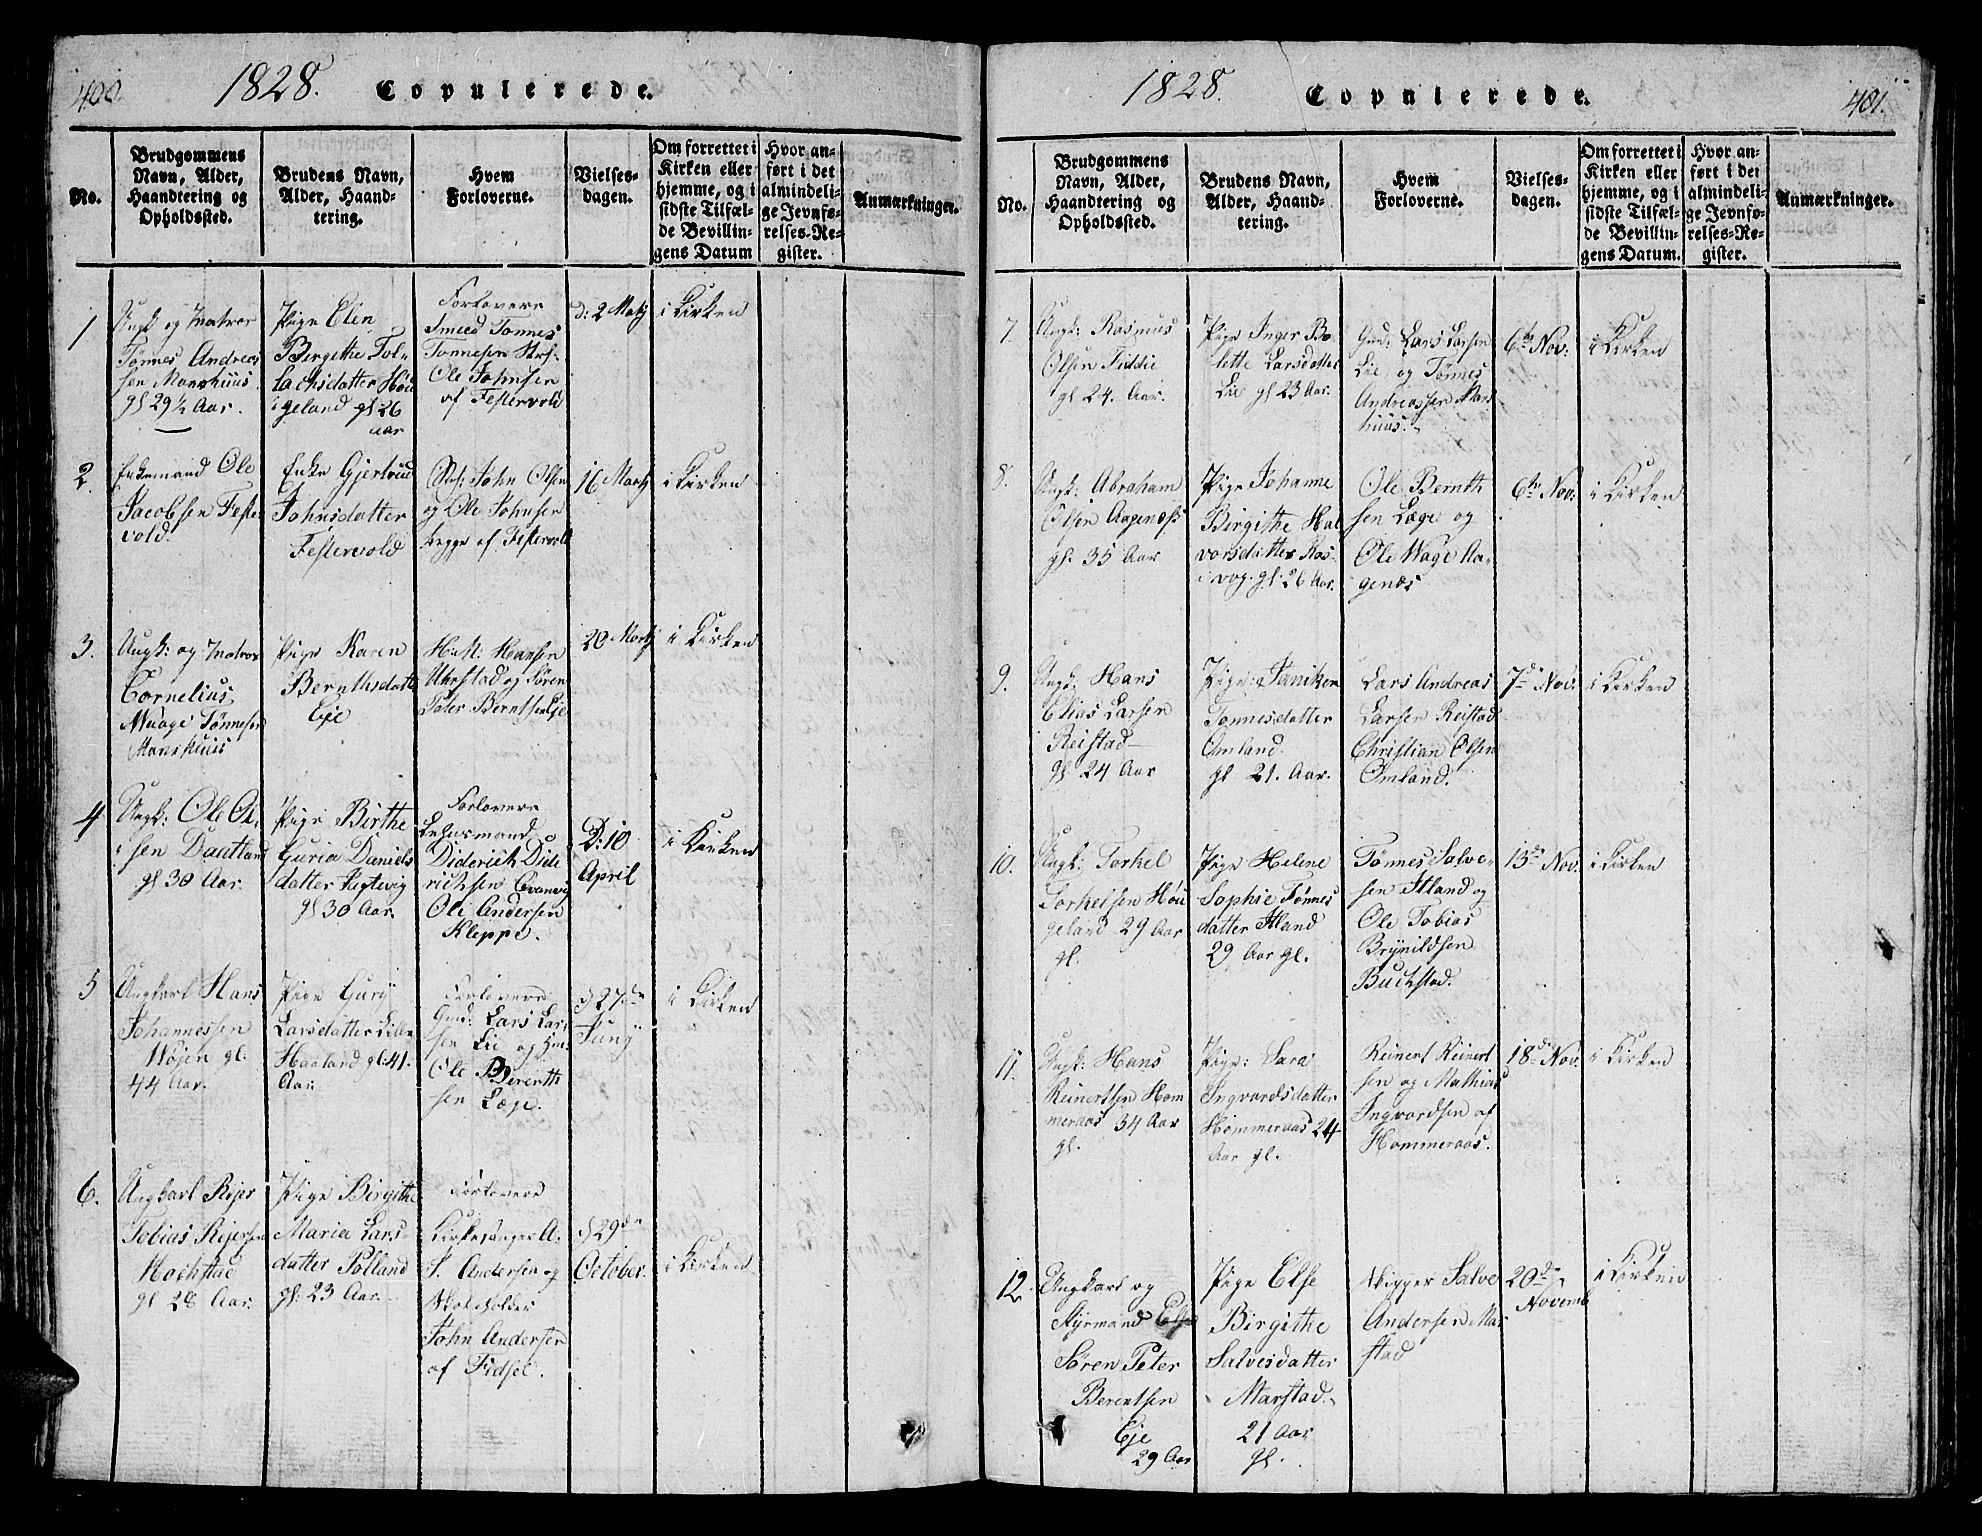 400.
1828. Copulerede.
No.
Brudgommens
Navn, Alder,
Haandtering og
Opholdssted.
Brudens Navn,
Alder, Haand-
tering.
Hvem
Forloverne.
Vielses-
dagen.
Om forrettet i
Kirken eller
hjemme, og i
sidste Tilfæl-
de Bevillin-
gens Datum
Hvor an-
ført i det
almindeli-
ge Jevnfø-
relses-Re-
gister.
Anmærkninger.
1
Ungk og
Tønnes Andreas
sen Monshuus
gl 29½ Aar.
Pige Elen
Birgithe Tol-
lachsdatter Höü
geland gl 26
aar
Forlovere
Smeed Tonnes
Tonnesen
Ole Johnsen
af Festervold
d: 2 Martj
i Kirken
2.
Enkemand Ole
Jacobsen Feste-
vold.
Enke Gjertrud
Johnsdatter
Festervold
John Olsen
og Ole Johnsen
begge af Festervold
16 Martj
i Kirken
3.
Ungk: og
Cornelius
Waage Tönnesen
Monshuus
Pige Karen
Bernthsdatt
Eje
Hansen
Uhrstad og Sören
Peter Berntsen Eje
20 Martj
i Kirken
4
Ungk: Ole Ol-
sen Dautland
gl 30 Aar.
Pige Birthe
Guria Daniels
datter Jegtevig
gl 30 Aar.
Forlovere
Lehnsmand
Diderich Dide
richsen Qvanvig
Ole Andersen
Kleppe.
D: 10
April
i Kirken
5
Ungkarl Hans
Johannessen
Wöjen gl.
44 Aar.
Pige Gurÿ
Larsdatter Lille
Haaland gl: 41.
Aar.
Forlovere
Gmd: Lars Lar-
sen Lie og
Ole Berenth
sen Læge.
d 27de
Junÿ
i Kirken
6.
Ungkarl Rejer
Tobias Rejersen
Hochstad
gl 28 Aar.
Pige Birgithe
Maria Lars
datter Polland
gl: 23 Aar.
Forlovere
Kirkesanger A.
S. Andersen og
Skoleholder
John Andersen
af Fidsel.
d 29de
October.
i Kirken
1828. Copulerede.
401.
No.
Brudgommens
Navn, Alder,
Haandtering og
Opholdssted.
Brudens Navn,
Alder, Haand-
tering.
Hvem
Forloverne.
Vielses-
dagen.
Om forrettet i
Kirken eller
hjemme, og i
sidste Tilfæl-
de Bevillin-
gens Datum.
Hvor an-
ført i det
almindeli-
ge Jevnfø-
relses-Re-
gister.
Anmærkninger.
7.
Ungk: Rasmus
Olsen Fiddie
gl 24. Aar.
Pige Inger Bo-
lette Larsdatter
Lie gl 23 Aar.
Gmd: Lars Larsen
Lie og Tönnes
Andreassen Mons
huus.
6te Nov:
i Kirken
8.
Ungk: Abraham
Olsen Aagenæss
gl. 35 Aar
Pige Johanne
Birgithe Hal
vorsdatter Ros-
vog. gl. 26 Aar.
Ole Bernth
sen Læge og
Ole Wage Aa-
genæs
6te Nov:
i Kirken
9.
Ungk: Hans
Elias Larsen
Reistad
gl 24 Aar
Pige: Janiken
Tonnesdatter
Omland.
gl 21. Aar.
Lars Andreas
Larsen Reistad
Christian Olsen
Omland.
7de Nov:
i Kirken
10.
Ungk: Torkel
Torkelsen Höü
geland 29 Aar
gl.
Pige Helene
Sophie Tönnes
datter Aland
29 Aar gl.
Tönnes Salve-
sen Aland og
Ole Tobias
Brÿnildsen
Buchstad.
13de Nov.
i Kirken
11.
Ungk: Hans
Reinertsen Hom
meraas 34 Aar
gl.
Pige: Sara
Ingvordsdatter
Hommeraas 24
Aar gl.
Reinert Reinert
sen og Mathias
Ingvordsen af
Hommeraas.
18de Nov:
i Kirken
12.
Ungkarl og
Styrmand
Sören Peter
Berentsen
Eje
29 Aar
Pige Else
Birgithe
Salvesdatter
Marstad.
21 Aar
gl.
Skipper Salve
Andersen Mar
stad
20de
Novemb
i Kirken